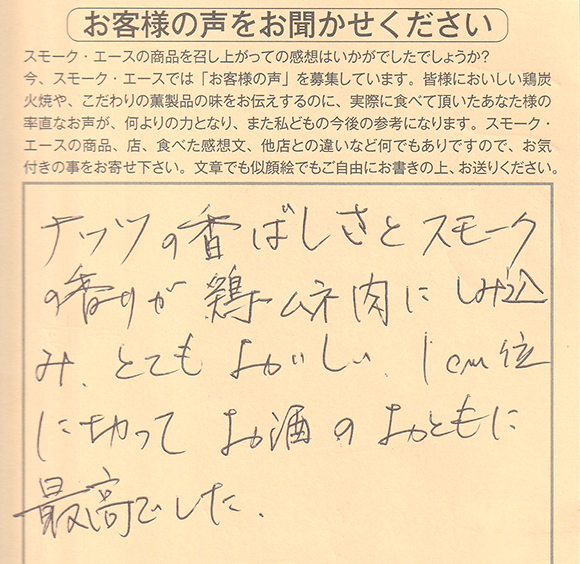 お客様の声をお聞かせください
スモーク・エースの商品を召し上がっての感想はいかがでしたでしょうか?
今、スモーク・エースでは「お客様の声」を募集しています。皆様においしい鶏炭
火焼や、こだわりの薫製品の味をお伝えするのに、実際に食べて頂いたあなた様の
率直なお声が、何よりの力となり、また私どもの今後の参考になります。スモーク・
エースの商品、店、食べた感想文、他店との違いなど何でもありですので、お気
付きの事をお寄せ下さい。文章でも似顔絵でもご自由にお書きの上、お送りください。
ナッツの香ばしさとスモーク
の香りが鶏ムネ肉にしみ込
み、とてもおいしい、1cm位
に切ってお酒のおともに
最高でした。